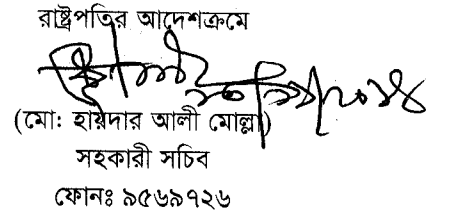 রাষ্ট্রপতির আদেশক্রমে
(মো: হায়দার আলী মোল্লা)
সহকারী সচিব
ফোনঃ ৯৫৬৯৭২৬